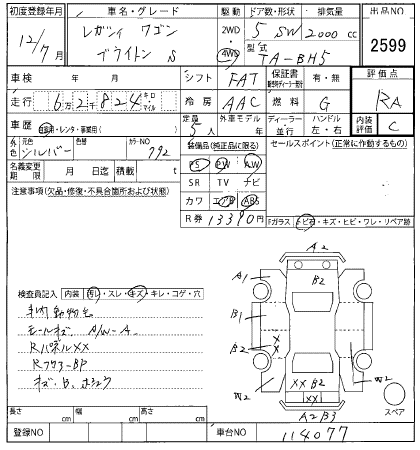 初度登録年月 車名・グレード 駆動 ドア数・形状 排気量 出品NO
12/7月 レガシィ ワゴン 2WD 5 SW 2000cc 2599
ブライトン S 4WD 型式 TA-BH5
車検 年 月 シフト FAT 保証書 有・無 評価点
走行 6万2千824 キロ マイル 冷房 AAC 燃料 G RA
車歴 自家用・レンタ・事業用( ) 定員 5人 外車モデル 年 ディーラー 並行 ハンドル 左・右 内装評価 C
外色 元色 シルバー 色替 カラーNO 792 装備品(純正品に限る) セールスポイント(正常に作動するもの)
名義変更期限 月 日 積載 t PS PW AW
注意事項(欠品・修復・不具合箇所および状態) SR TV ナビ
カワ エアB ABS
R券 13390円 Fガラス トビ石・キズ・ヒビ・ワレ・リペア跡
A2
A1 B2
B1
B2 XX
W2 XX B2 W2
XX
A2 B3
スペア
検査員記入 内装 汚れ・スレ・キズ・キレ・コゲ・穴
車内動物毛
モールキズ A/W-A
RパネルXX
Rフクラ-BP
キズ、B、ホシュウ
長さ cm 幅 cm 高さ cm
登録NO 車台NO 114077